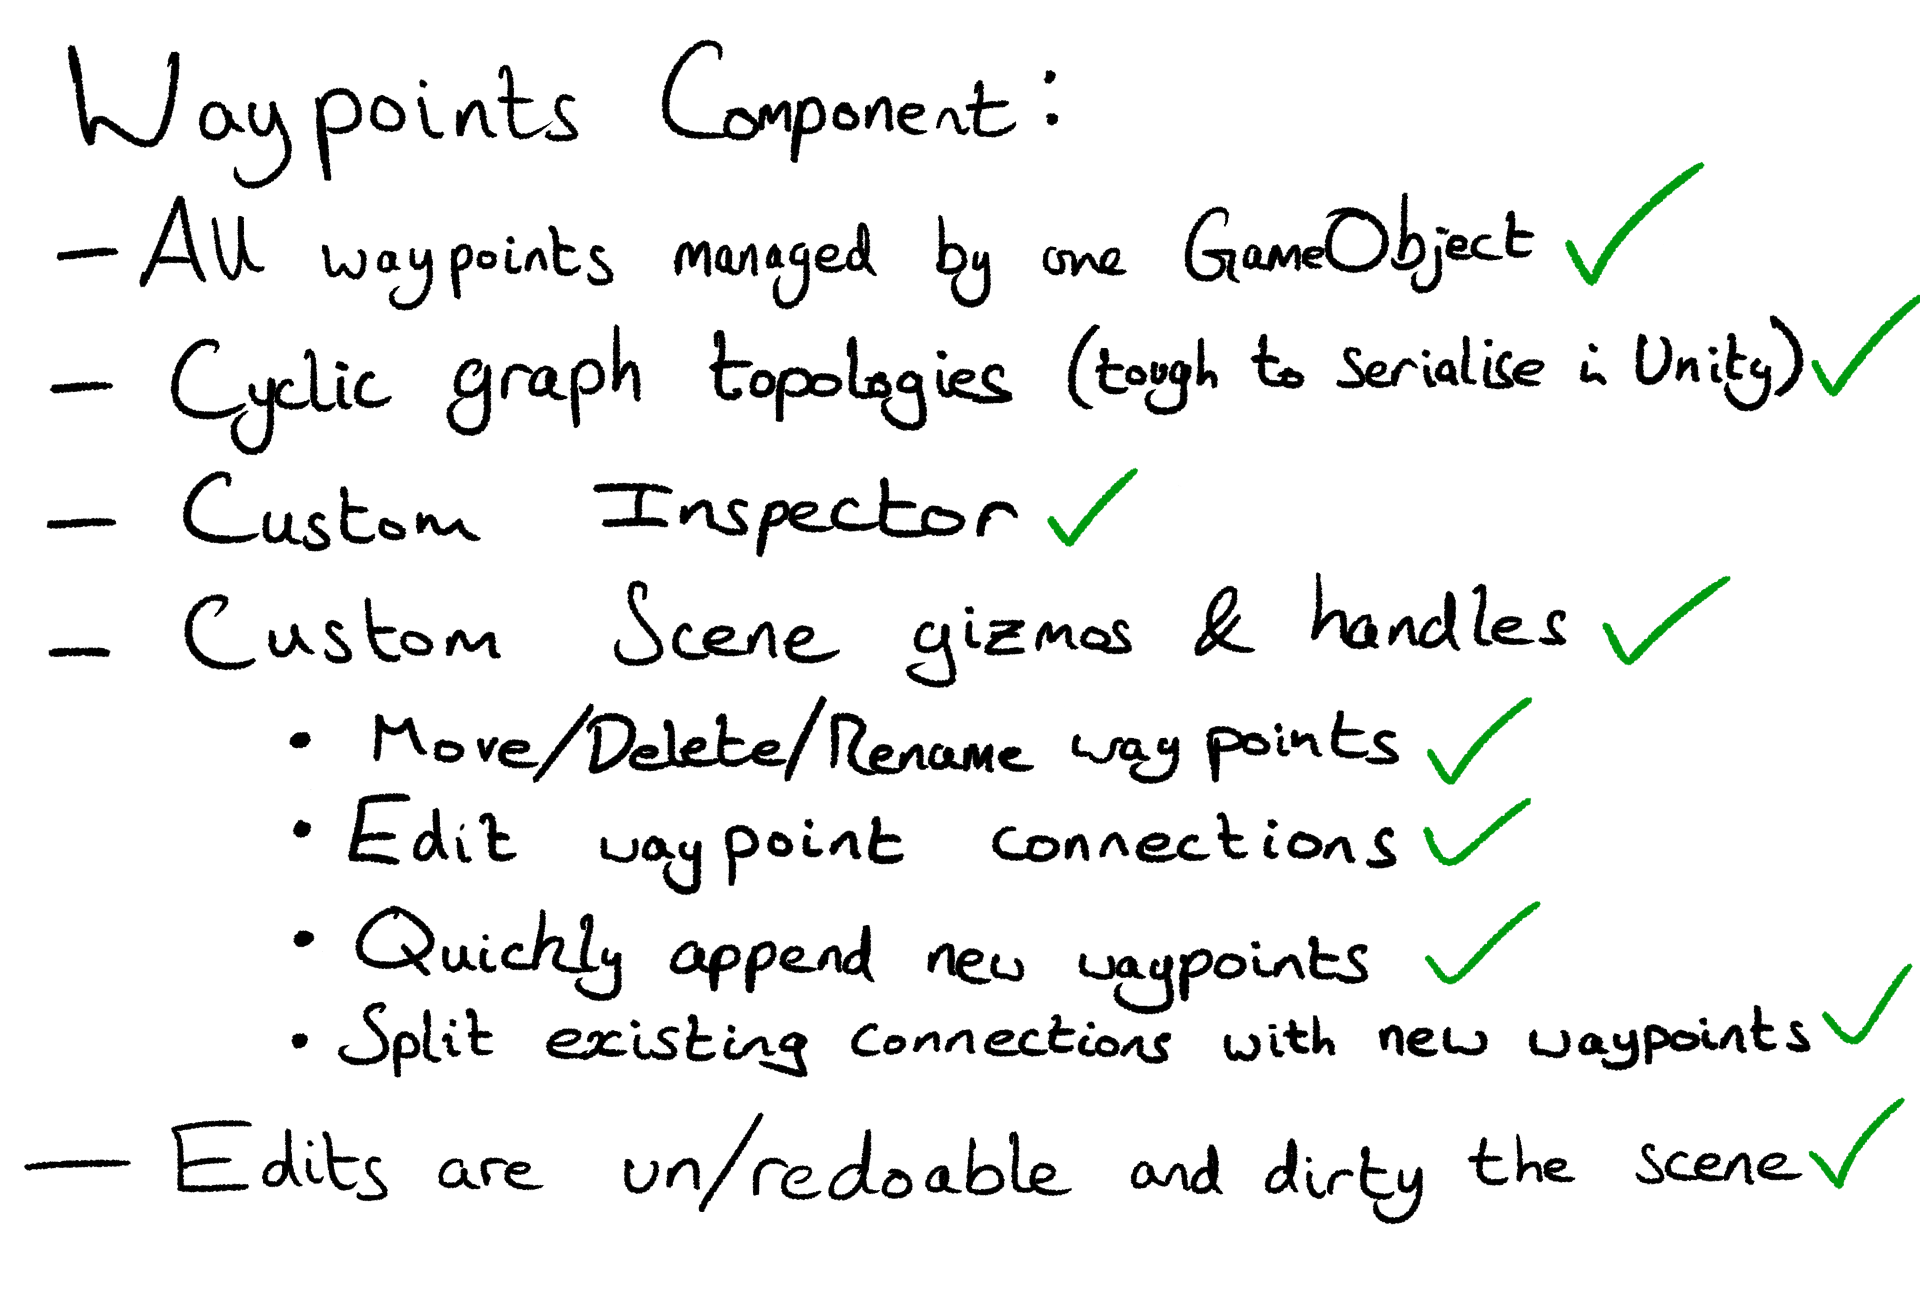 Waypoints Component:
— All waypoints managed by one GameObject ✓
— Cyclic graph topologies (tough to serialise in Unity) ✓
— Custom Inspector ✓
— Custom Scene gizmos & handles ✓
• Move/Delete/Rename waypoints ✓
• Edit waypoint connections ✓
• Quickly append new waypoints ✓
• Split existing connections with new waypoints ✓
— Edits are un/redoable and dirty the scene ✓